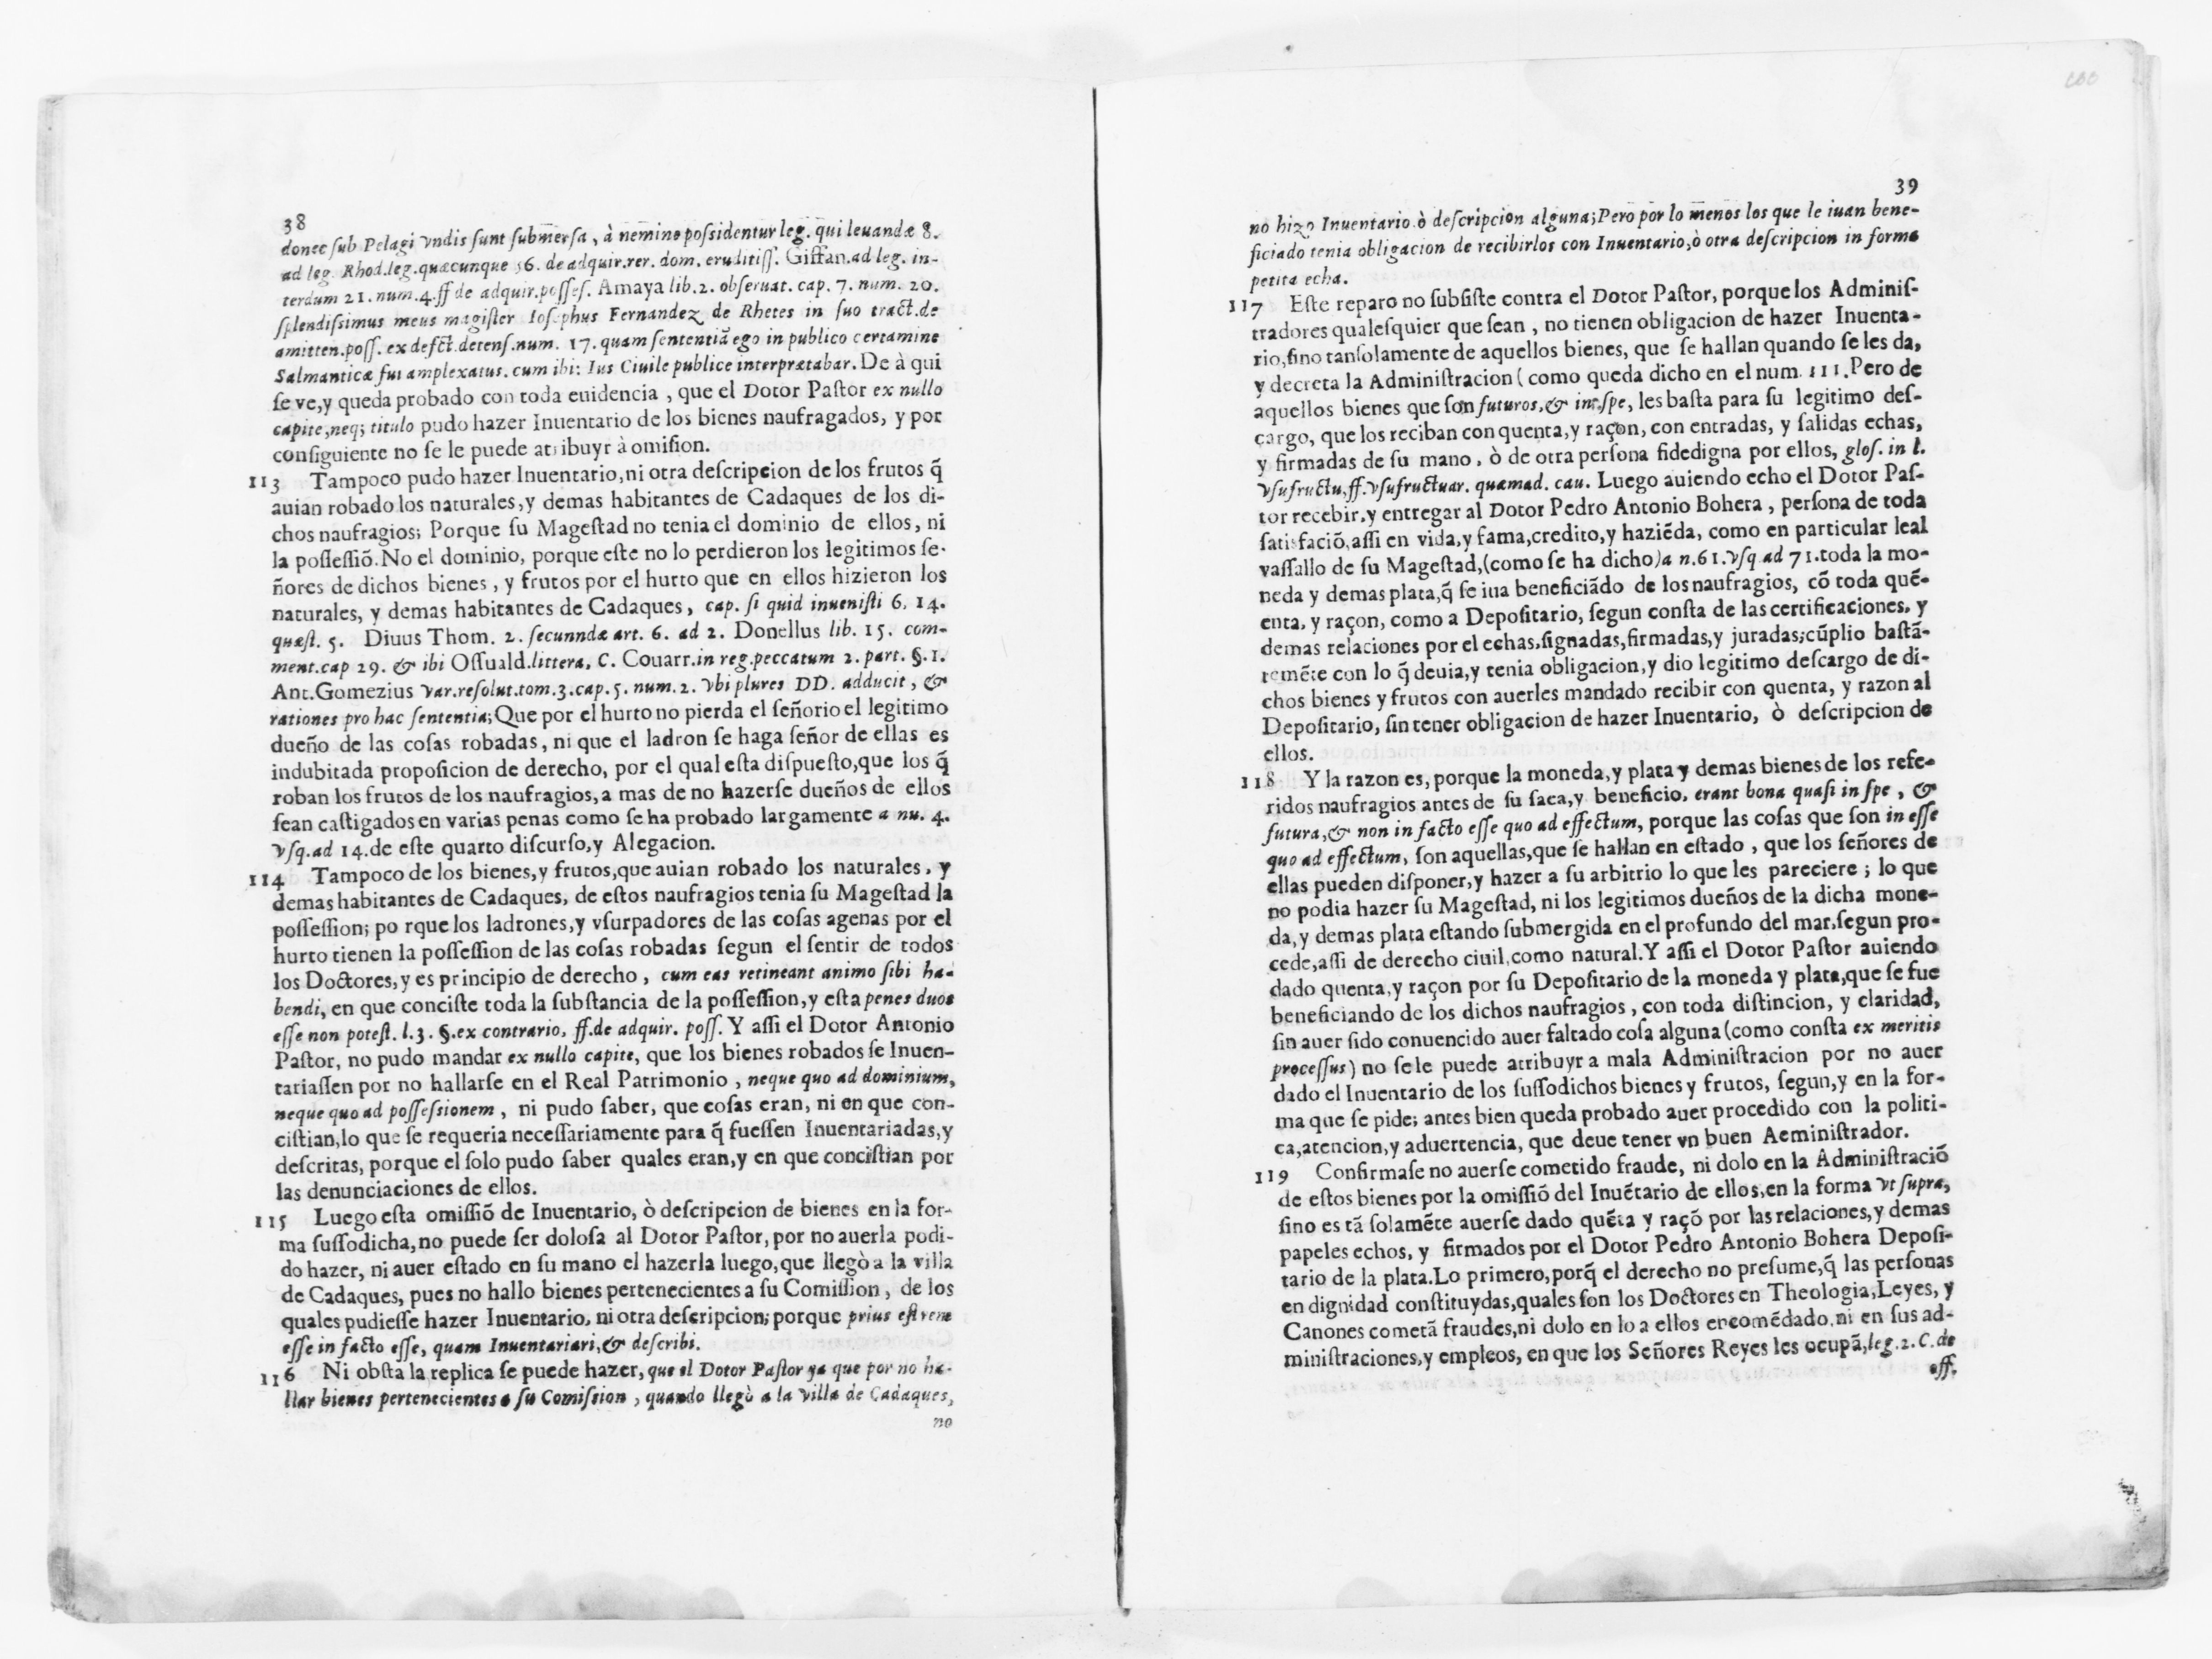 38
donec sub Pelagi vndis sunt submersa, à nemine possidentur leg. qui leuandæ 8.
ad leg. Rhod. leg. quæcunque 56. de adquir. rer. dom. eruditiss. Giffan. ad leg. in-
terdum 21. num. 4. ff de adquir. posses. Amaya lib. 2. obseruat. cap. 7. num. 20.
splendissimus meus magister Iosephus Fernandez de Rhetes in suo tract. de
amitten. poss. ex defct. detens. num. 17. quam sententiã ego in publico certamine
Salmanticæ fui amplexatus. cum ibi: Ius Ciuile publice interpretabar. De à qui
se ve, y queda probado con toda euidencia, que el Dotor Pastor ex nullo
capite, neq; titulo pudo hazer Inuentario de los bienes naufragados, y por
consiguiente no se le puede atribuyr à omision.
113 Tampoco pudo hazer Inuentario, ni otra descripcion de los frutos q̃
auian robado los naturales, y demas habitantes de Cadaques de los di-
chos naufragios; Porque su Magestad no tenia el dominio de ellos, ni
la possessiõ. No el dominio, porque este no lo perdieron los legitimos se-
ñores de dichos bienes, y frutos por el hurto que en ellos hizieron los
naturales, y demas habitantes de Cadaques, cap. si quid inuenisti 6. 14.
quæst. 5. Diuus Thom. 2. secunndæ art. 6. ad 2. Donellus lib. 15. com-
ment. cap 29. & ibi Ossuald. littera, C. Couarr. in reg. peccatum 2. part. §. 1.
Ant. Gomezius var. resolut. tom. 3. cap. 5. num. 2. vbi plures DD. adducit, &
rationes pro hac sententia; Que por el hurto no pierda el señorio el legitimo
dueño de las cosas robadas, ni que el ladron se haga señor de ellas es
indubitada proposicion de derecho, por el qual esta dispuesto, que los q̃
roban los frutos de los naufragios, a mas de no hazerse dueños de ellos
sean castigados en varias penas como se ha probado largamente a nu. 4.
vsq. ad 14. de este quarto discurso, y Alegacion.
114 Tampoco de los bienes, y frutos, que auian robado los naturales, y
demas habitantes de Cadaques, de estos naufragios tenia su Magestad la
possession; po rque los ladrones, y vsurpadores de las cosas agenas por el
hurto tienen la possession de las cosas robadas segun el sentir de todos
los Doctores, y es principio de derecho, cum eas retineant animo sibi ha-
bendi, en que conciste toda la substancia de la possession, y esta penes duos
esse non potest. l. 3. §. ex contrario, ff. de adquir. poss. Y assi el Dotor Antonio
Pastor, no pudo mandar ex nullo capite, que los bienes robados se Inuen-
tariassen por no hallarse en el Real Patrimonio, neque quo ad dominium,
neque quo ad possessionem, ni pudo saber, que cosas eran, ni en que con-
cistian, lo que se requeria necessariamente para q̃ fuessen Inuentariadas, y
descritas, porque el solo pudo saber quales eran, y en que concistian por
las denunciaciones de ellos.
115 Luego esta omissiõ de Inuentario, ò descripcion de bienes en la for-
ma sussodicha, no puede ser dolosa al Dotor Pastor, por no auerla podi-
do hazer, ni auer estado en su mano el hazerla luego, que llegò a la villa
de Cadaques, pues no hallo bienes pertenecientes a su Comission, de los
quales pudiesse hazer Inuentario, ni otra descripcion; porque prius est rem
esse in facto esse, quam Inuentariari, & describi.
116 Ni obsta la replica se puede hazer, que el Dotor Pastor ya que por no ha-
llar bienes pertenecientes a su Comission, quando llegò a la villa de Cadaques,
no
39
no hizo Inuentario ò descripcion alguna; Pero por lo menos los que le iuan bene-
ficiado tenia obligacion de recibirlos con Inuentario, ò otra descripcion in forma
petita echa.
117 Este reparo no subsiste contra el Dotor Pastor, porque los Adminis-
tradores qualesquier que sean, no tienen obligacion de hazer Inuenta-
rio, sino tansolamente de aquellos bienes, que se hallan quando se les da,
y decreta la Administracion (como queda dicho en el num. 111. Pero de
aquellos bienes que son futuros, & in spe, les basta para su legitimo des-
cargo, que los reciban con quenta, y raçon, con entradas, y salidas echas,
y firmadas de su mano, ò de otra persona fidedigna por ellos, glos. in l.
vsufructu, ff. vsufructuar. quemad. cau. Luego auiendo echo el Dotor Pas-
tor recebir, y entregar al Dotor Pedro Antonio Bohera, persona de toda
satisfaciõ, assi en vida, y fama, credito, y haziẽda, como en particular leal
vassallo de su Magestad, (como se ha dicho) a n. 61. vsq ad 71. toda la mo-
neda y demas plata, q̃ se iua beneficiãdo de los naufragios, cõ toda quẽ-
enta, y raçon, como a Depositario, segun consta de las certificaciones, y
demas relaciones por el echas, signadas, firmadas, y juradas; cũplio bastã-
temẽte con lo q̃ deuia, y tenia obligacion, y dio legitimo descargo de di-
chos bienes y frutos con auerles mandado recibir con quenta, y razon al
Depositario, sin tener obligacion de hazer Inuentario, ò descripcion de
ellos.
118 Y la razon es, porque la moneda, y plata y demas bienes de los refe-
ridos naufragios antes de su saca, y beneficio, erant bona quasi in spe, &
futura, & non in facto esse quo ad effectum, porque las cosas que son in esse
quo ad effectum, son aquellas, que se hallan en estado, que los señores de
ellas pueden disponer, y hazer a su arbitrio lo que les pareciere; lo que
no podia hazer su Magestad, ni los legitimos dueños de la dicha mone-
da, y demas plata estando submergida en el profundo del mar, segun pro-
cede, assi de derecho ciuil, como natural. Y assi el Dotor Pastor auiendo
dado quenta, y raçon por su Depositario de la moneda y plata, que se fue
beneficiando de los dichos naufragios, con toda distincion, y claridad,
sin auer sido conuencido auer faltado cosa alguna (como consta ex meritis
processus) no se le puede atribuyr a mala Administracion por no auer
dado el Inuentario de los sussodichos bienes y frutos, segun, y en la for-
ma que se pide; antes bien queda probado auer procedido con la politi-
ca, atencion, y aduertencia, que deue tener vn buen Aeministrador.
119 Confirmase no auerse cometido fraude, ni dolo en la Administraciõ
de estos bienes por la omissiõ del Inuẽtario de ellos, en la forma vt supra,
sino es tã solamẽte auerse dado quẽta y raçõ por las relaciones, y demas
papeles echos, y firmados por el Dotor Pedro Antonio Bohera Deposi-
tario de la plata. Lo primero, porq̃ el derecho no presume, q̃ las personas
en dignidad constituydas, quales son los Doctores en Theologia, Leyes, y
Canones cometã fraudes, ni dolo en lo a ellos encomẽdado, ni en sus ad-
ministraciones, y empleos, en que los Señores Reyes les ocupã, leg. 2. C. de
off.